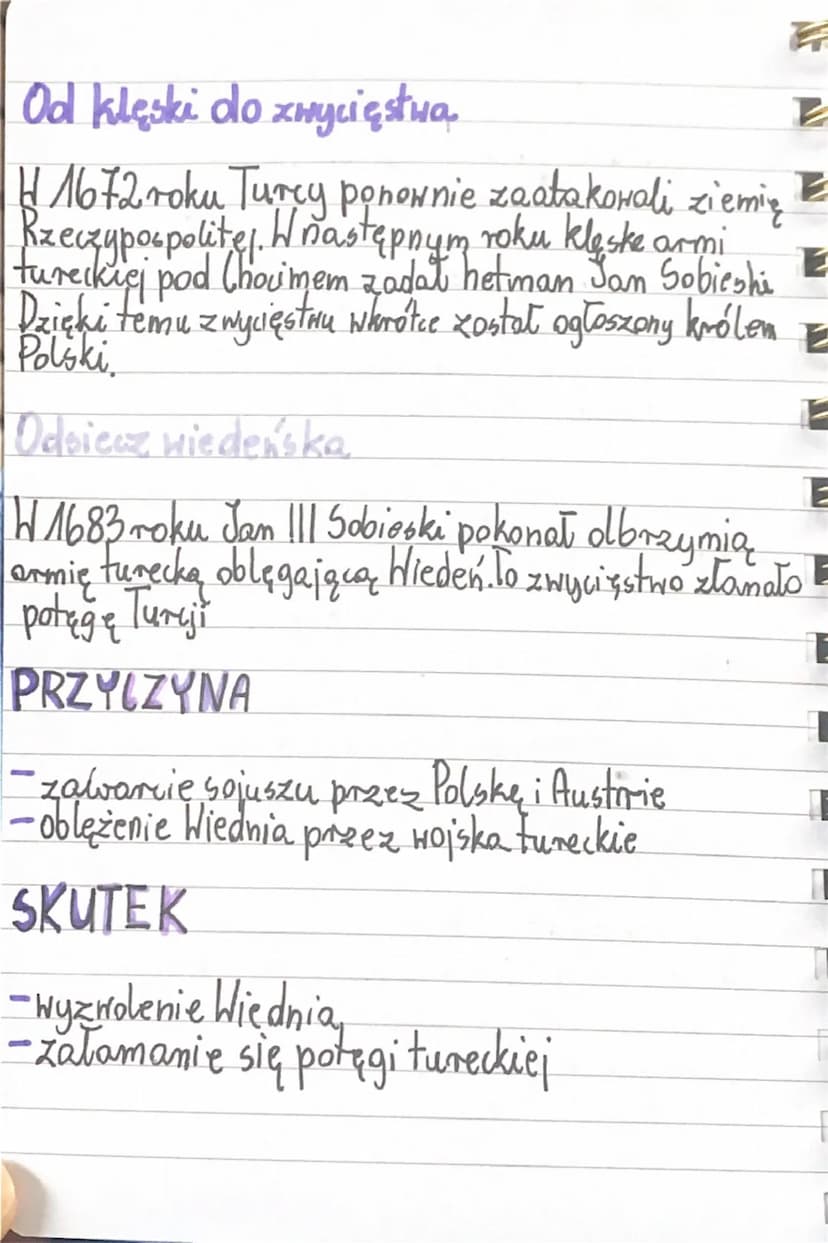 Od klęski do zwycięstwa
W 1672 roku Turcy ponownie zaatakowali ziemię
Rzeczypospolitej. W następnym roku klęske armi
tureckiej pod Chocimem zadał hetman Jan Sobieski
Dzięki temu zwycięstwu wkrótce został ogłoszony królem
Polski.
Odsiecz wiedeńska
W 1683 roku Jan III Sobieski pokonał olbrzymią
armię turecką oblęgającą Wiedeń. To zwycięstwo złamało
potęgę Turcji
PRZYCZYNA
- zawarcie sojuszu przez Polskę i Austrie
- oblężenie Wiednia przez wojska tureckie
SKUTEK
- wyzwolenie Wiednia,
- załamanie się potęgi tureckiej